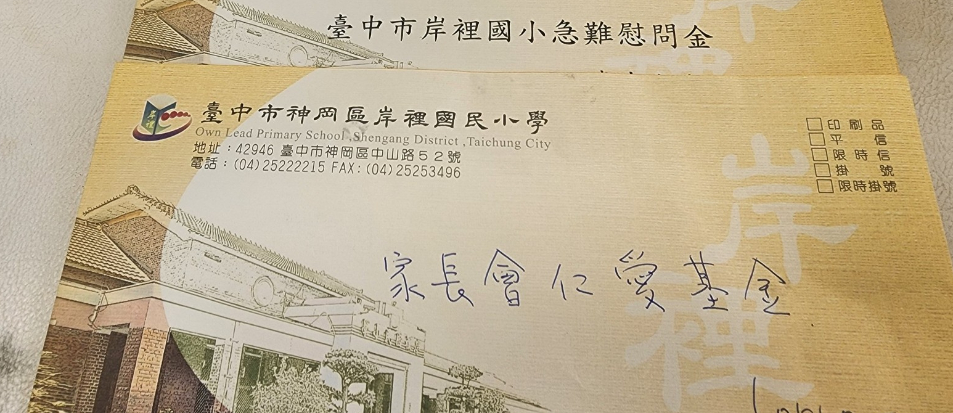 臺中市岸裡國小急難慰問金
臺中市神岡區岸裡國民小學
Own Lead Primary School ,Shengang District ,Taichung City
地址：42946 臺中市神岡區中山路５２號
電話：(04)25222215 FAX：(04)25253496
印刷品
平信
限時信
掛號
限時掛號
家長會仁愛基金
岸裡